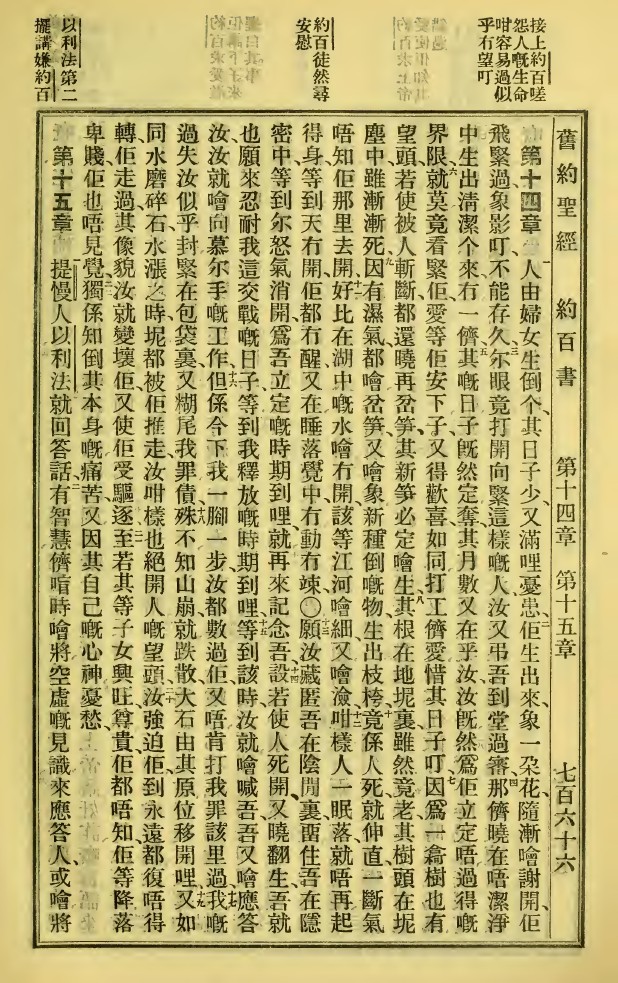 接上約百嗟
怨人嘅生命
咁容易過似
乎冇望叮
約百徒然尋
安慰
以利法第二
擺講嫌約百
舊約聖經 約百書 第十四章 第十五章 七百六十六
第十四章 一人由婦女生倒个其日子少、又滿哩憂患、二佢生出來、象一朶花、隨漸噲謝開、佢
飛緊過象影叮、不能存久、三尔眼竟打開向緊這樣嘅人、汝又弔吾到堂過審、四那儕曉在唔潔淨
中、生出清潔个來、冇一儕、五其嘅日子既然定奪、其月數又在乎汝、汝既然爲佢立定唔過得嘅
界限、六就莫竟看緊佢、愛等佢安下子、又得歡喜如同打工儕愛惜其日子叮、七因爲一樖樹也有
望頭、若使被人斬斷、都還曉再岔笋、其新笋必定噲生、八其根在地坭裏雖然竟老、其樹頭在坭
塵中雖漸漸死、九因有濕氣、都噲岔笋、又噲象新種倒嘅物生出枝桍、十竟係人死就伸直、一斷氣
唔知佢那里去開、十一好比在湖中嘅水噲冇開、該等江河噲細、又噲㵸、十二咁樣人一眠落、就唔再起
得身、等到天冇開、佢都冇醒、又在睡落覺中冇動冇竦、〇十三願汝藏匿吾在陰間裏、畱住吾在隱
密中、等到尔怒氣消開、爲吾立定嘅時期到哩、就再來記念吾、十四設若使人死開、又曉翻生、吾就
也願來忍耐我這交戰嘅日子、等到我釋放嘅時期到哩、十五等到該時汝就噲喊吾、吾又噲應答
汝、汝就噲向慕尔手嘅工作、十六但係今下我一腳一步汝都數過佢、又唔肯打我罪該里過、十七我嘅
過失汝似乎封緊在包袋裏、又糊尾我罪債、十八殊不知山崩就跌散、大石由其原位移開哩、十九又如
同水磨碎石、水漲之時、坭都被佢推走、汝咁樣也絕開人嘅望頭、二十汝強迫佢到永遠、都復唔得
轉、佢走過、其像貌汝就變壞佢、又使佢受驅逐、二一至若其等子女興旺尊貴、佢都唔知、佢等降落
卑賤、佢也唔見覺、二二獨係知倒其本身嘅痛苦、又因其自己嘅心神憂愁、
第十五章 一提慢人以利法就回答話、二有智慧儕喑時噲將空虛嘅見識來應答人、或噲將